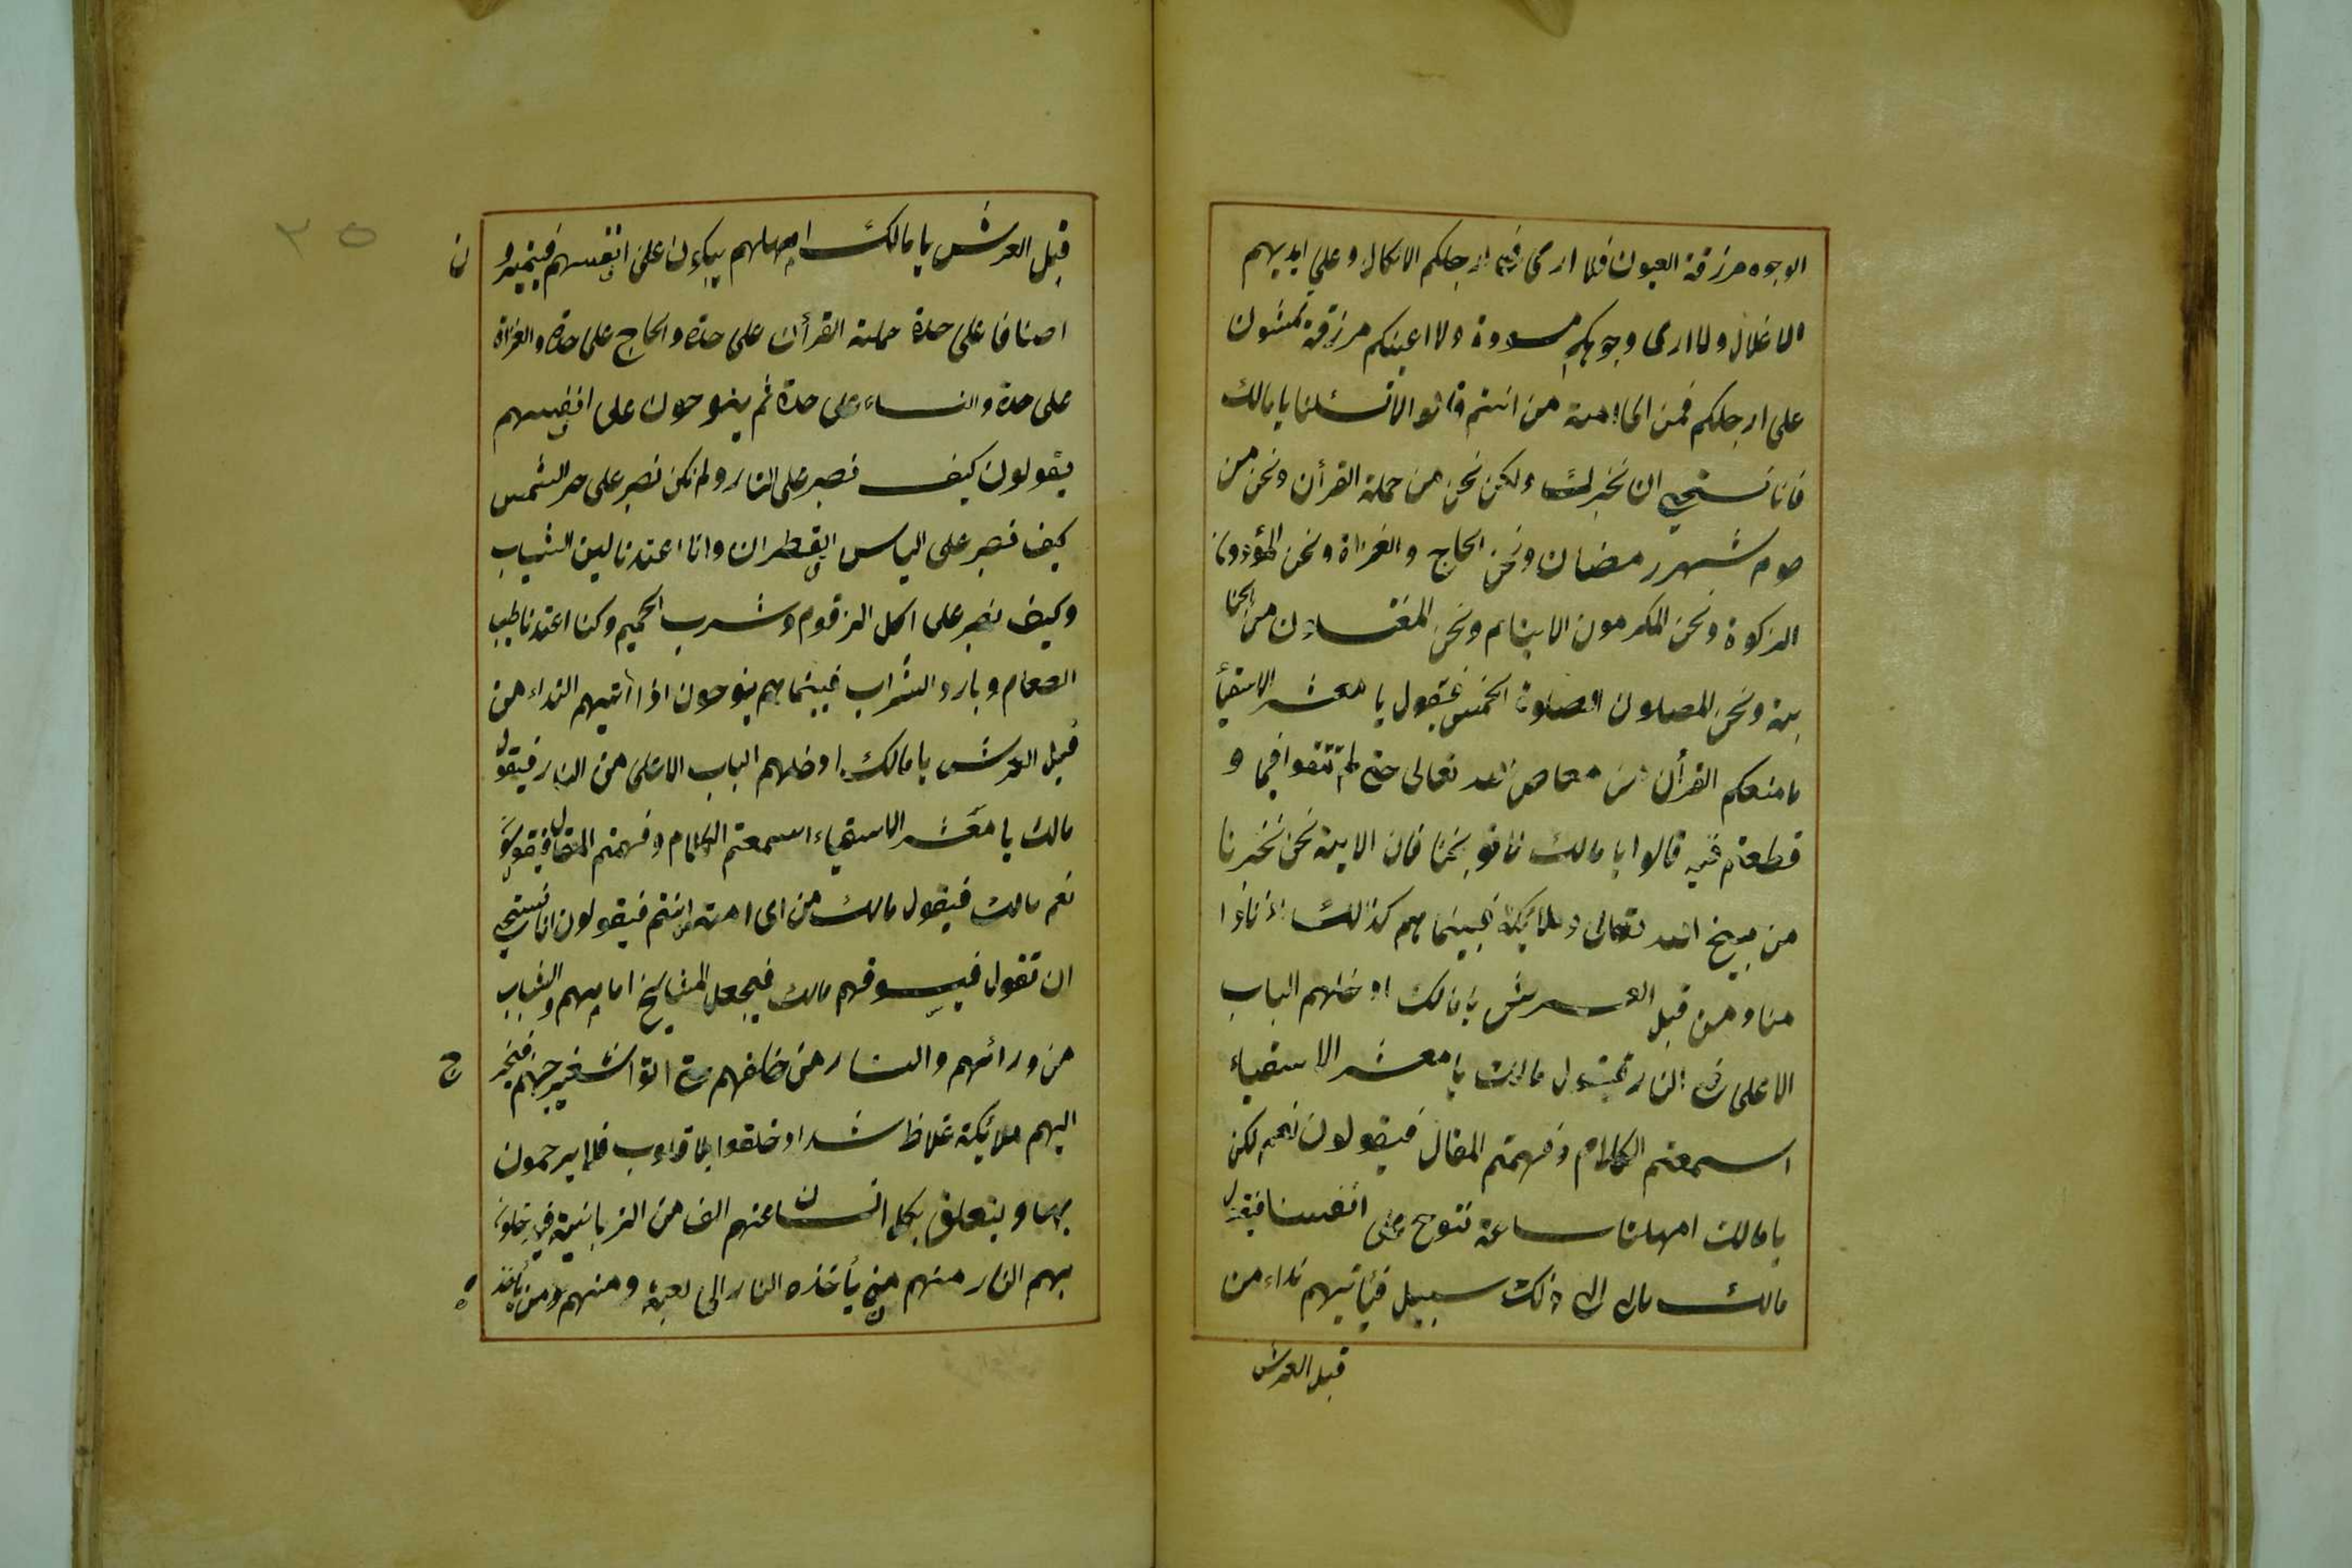 الوجوه مزرقة العيون فلا ارى في ارجلكم الانكال وعلي ايديهم
الاغلال ولا ارى وجوهكم مسودة ولا اعينكم مزرقة تمشون
على ارجلكم فمن اى امة من انتم قالوا لا تسئلنا يا مالك
فانا نستحي ان نخبرك ولكن نحن من حملة القرأن ونحن من
صوم شهر رمضان ونحن الحاج والغزاة ونحن المؤدون
الزكوة ونحن المكرمون الايتام ونحن المغتسلون من الجنا
بة ونحن المصلون الصلوة الخمس فيقول يا معشر الاشقيأ
ما منعكم القرأن عن معاصى الله تعالى حتى لم تتقوا فيما و
قطعتم فيه قالوا يا مالك لا توبخنا فان الاية نحن نخبرنا
من توبيخ الله تعالى وملائكة فبينما هم كذلك اذ نادا
مناد من قبل العرش يا مالك ادخلهم الباب
الاعلى من النار فيقول مالك يا معشر الاشقياء
اسمعتم الكلام وفهمتم المقال فيقولون نعم لكن
يا مالك امهلنا ساعة ننوح على انفسنا فيقول
مالك مالى الى ذلك سبيل فيأتيهم نداء من
قبل العرش
٣٥
قبل العرش يا مالك امهلهم يبكون على انفسهم فيتميزو
ن
اصنافا على حدة حملة القرأن على حدة والحاج على حدة والغزاة
على حدة والنساء على حدة ثم ينوحون على انفسهم
يقولون كيف نصبر على النار ولم نكن نصبر على حر الشمس
كيف نصبر على الباس القطران وانا اعتدنا لين الثياب
وكيف نصبر على اكل الزقوم وشرب الحميم وكنا اعتدنا طيب
الطعام وبارد الشراب فبينما هم ينوحون اذا أتيهم النداء من
قبل العرش يا مالك ادخلهم الباب الاعلى من النار فيقول
مالك يا معشر الاشقياء اسمعتم الكلام وفهمتم المقال فيقولون
نعم مالك فيقول مالك من اى امة انتم فيقولون انا نستحي
ان نقول فيسوقهم مالك فيجعل المشايخ امامهم والشباب
من ورائهم والنساء من خلفهم حتى اتوا شفير جهنم فيخر
ج
اليهم ملائكة غلاظ شداد خلقوا بلا قلوب فلا يرحمون
بها ويتعلق بكل انسان منهم الف من الزبانية فيدخلون
بهم النار منهم من يأخذه النار الى كعبه ومنهم من يأخذ
ه